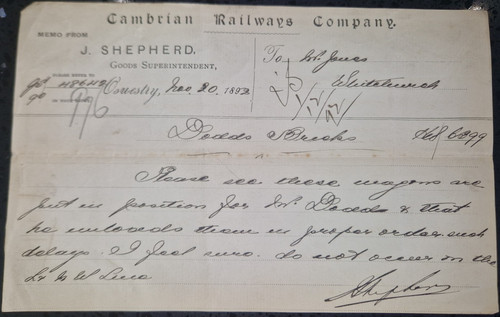 Cambrian Railways Company.
MEMO FROM
J. SHEPHERD,
GOODS SUPERINTENDENT,
To Mr Jones
Whitchurch
PLEASE REFER TO
Oswestry, Nov. 20. 1892
1/12/92
Dodds Bricks
Please see these wagons are
put in position for Mr Dodds & that
he unloads them in proper order. such
delays I feel sure do not occur on the
L & N W Line
J Shepherd